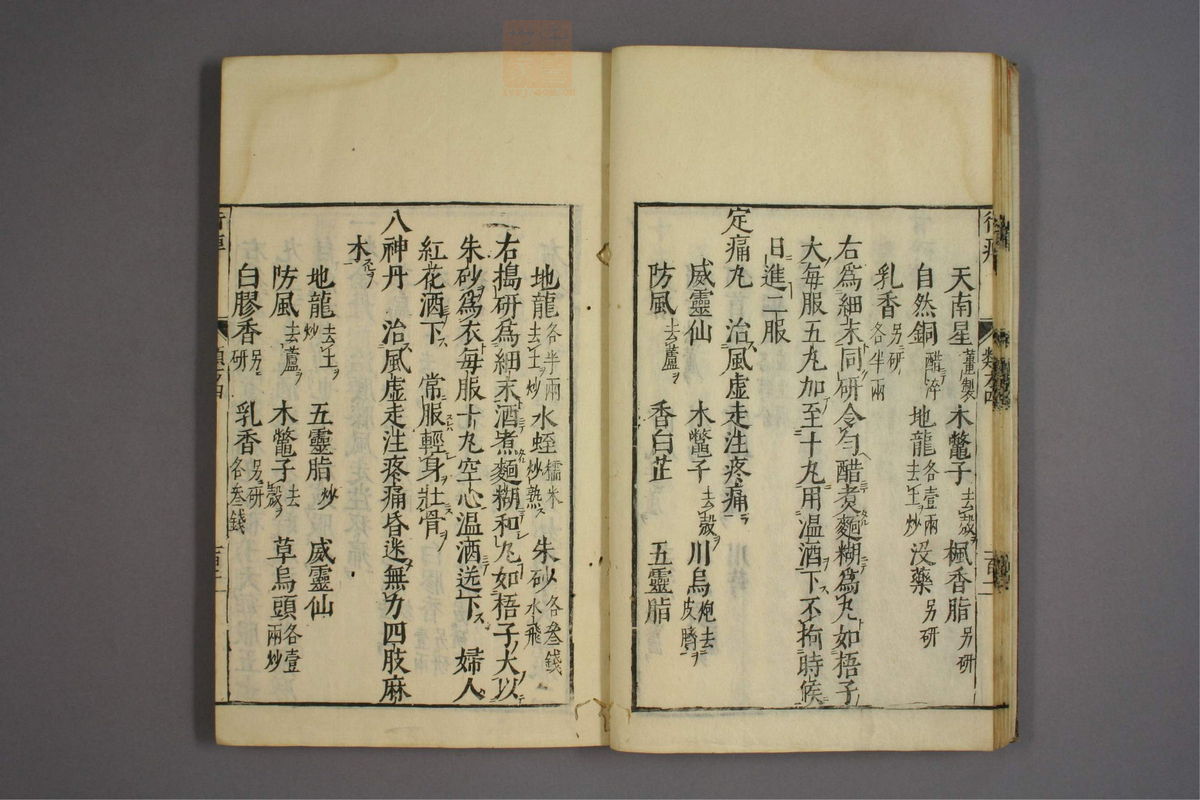 天南星薑製 木鼈子去殼ヲ 楓香脂另研
自然銅醋淬 地龍各壹兩去土ヲ炒 沒藥另研
乳香另研各半兩
右爲細末同研令勻醋煑麵糊爲丸如梧子
大每服五丸加至十丸用温酒下不拘時候
日進二服
定痛丸 治風虚走注疼痛
威靈仙 木鼈子去殼ヲ 川烏炮去皮臍ヲ
防風去蘆ヲ 香白芷 五靈脂
地龍各半兩去土ヲ炒 水蛭糯米炒熟 朱砂各叁錢水飛
右搗研爲細末酒煮麵糊和丸如梧子大以
朱砂爲衣每服十丸空心温酒送下 婦人
紅花酒下 常服輕身壯骨
八神丹 治風虚走注疼痛昏迷無力四肢麻
木
地龍去土ヲ炒 五靈脂炒 威靈仙
防風去蘆ヲ 木鼈子去殼ヲ 草烏頭各壹兩炒
白膠香另研 乳香另研各叁錢